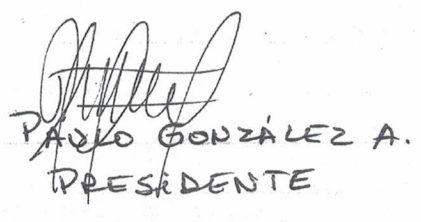 PAULO GONZÁLEZ A.
PRESIDENTE